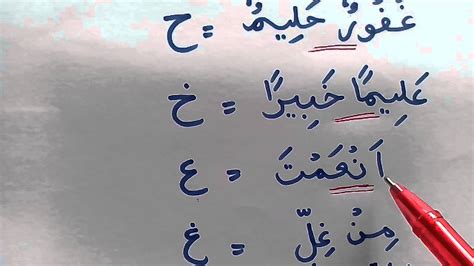 غَفُوْرٌ حَلِيمٌ = ح
عَلِيمًا خَبِيرًا = خ
اَنْعَمْتَ = ع
مِنْ غِلٍّ = غ